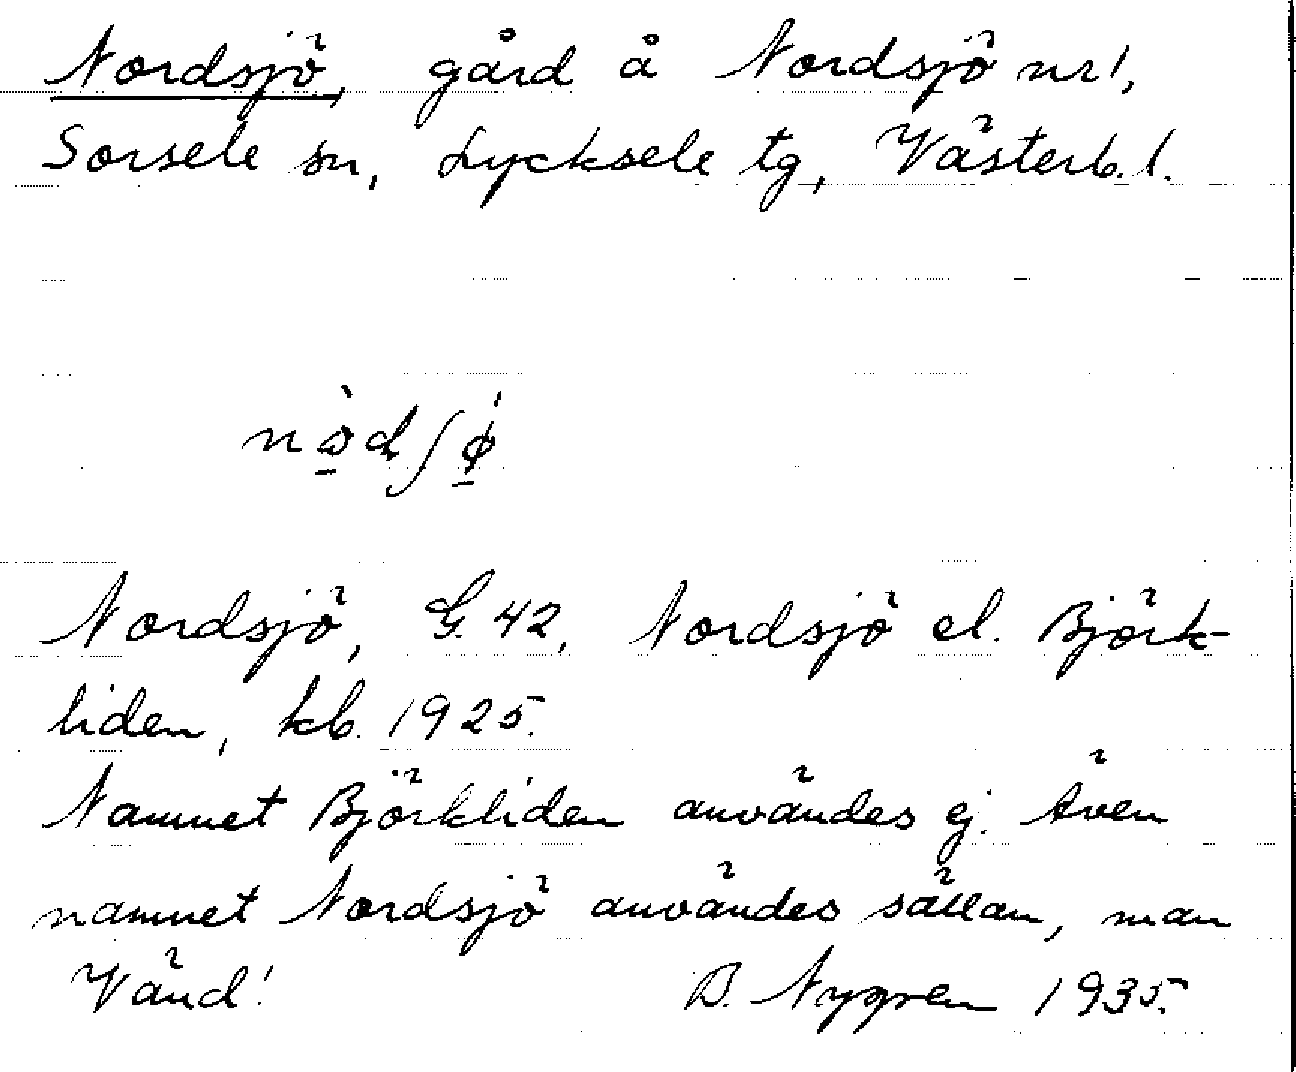 Nordsjö, gård å Nordsjö nr 1,
Sorsele sn, Lycksele tg, Västerb. l.
Nordsjö, G. 42, Nordsjö el. Björk-
liden, kb. 1925.
Namnet Björkliden användes ej. Även
namnet Nordsjö användes sällan, man
Vänd! B. Nygren 1935.